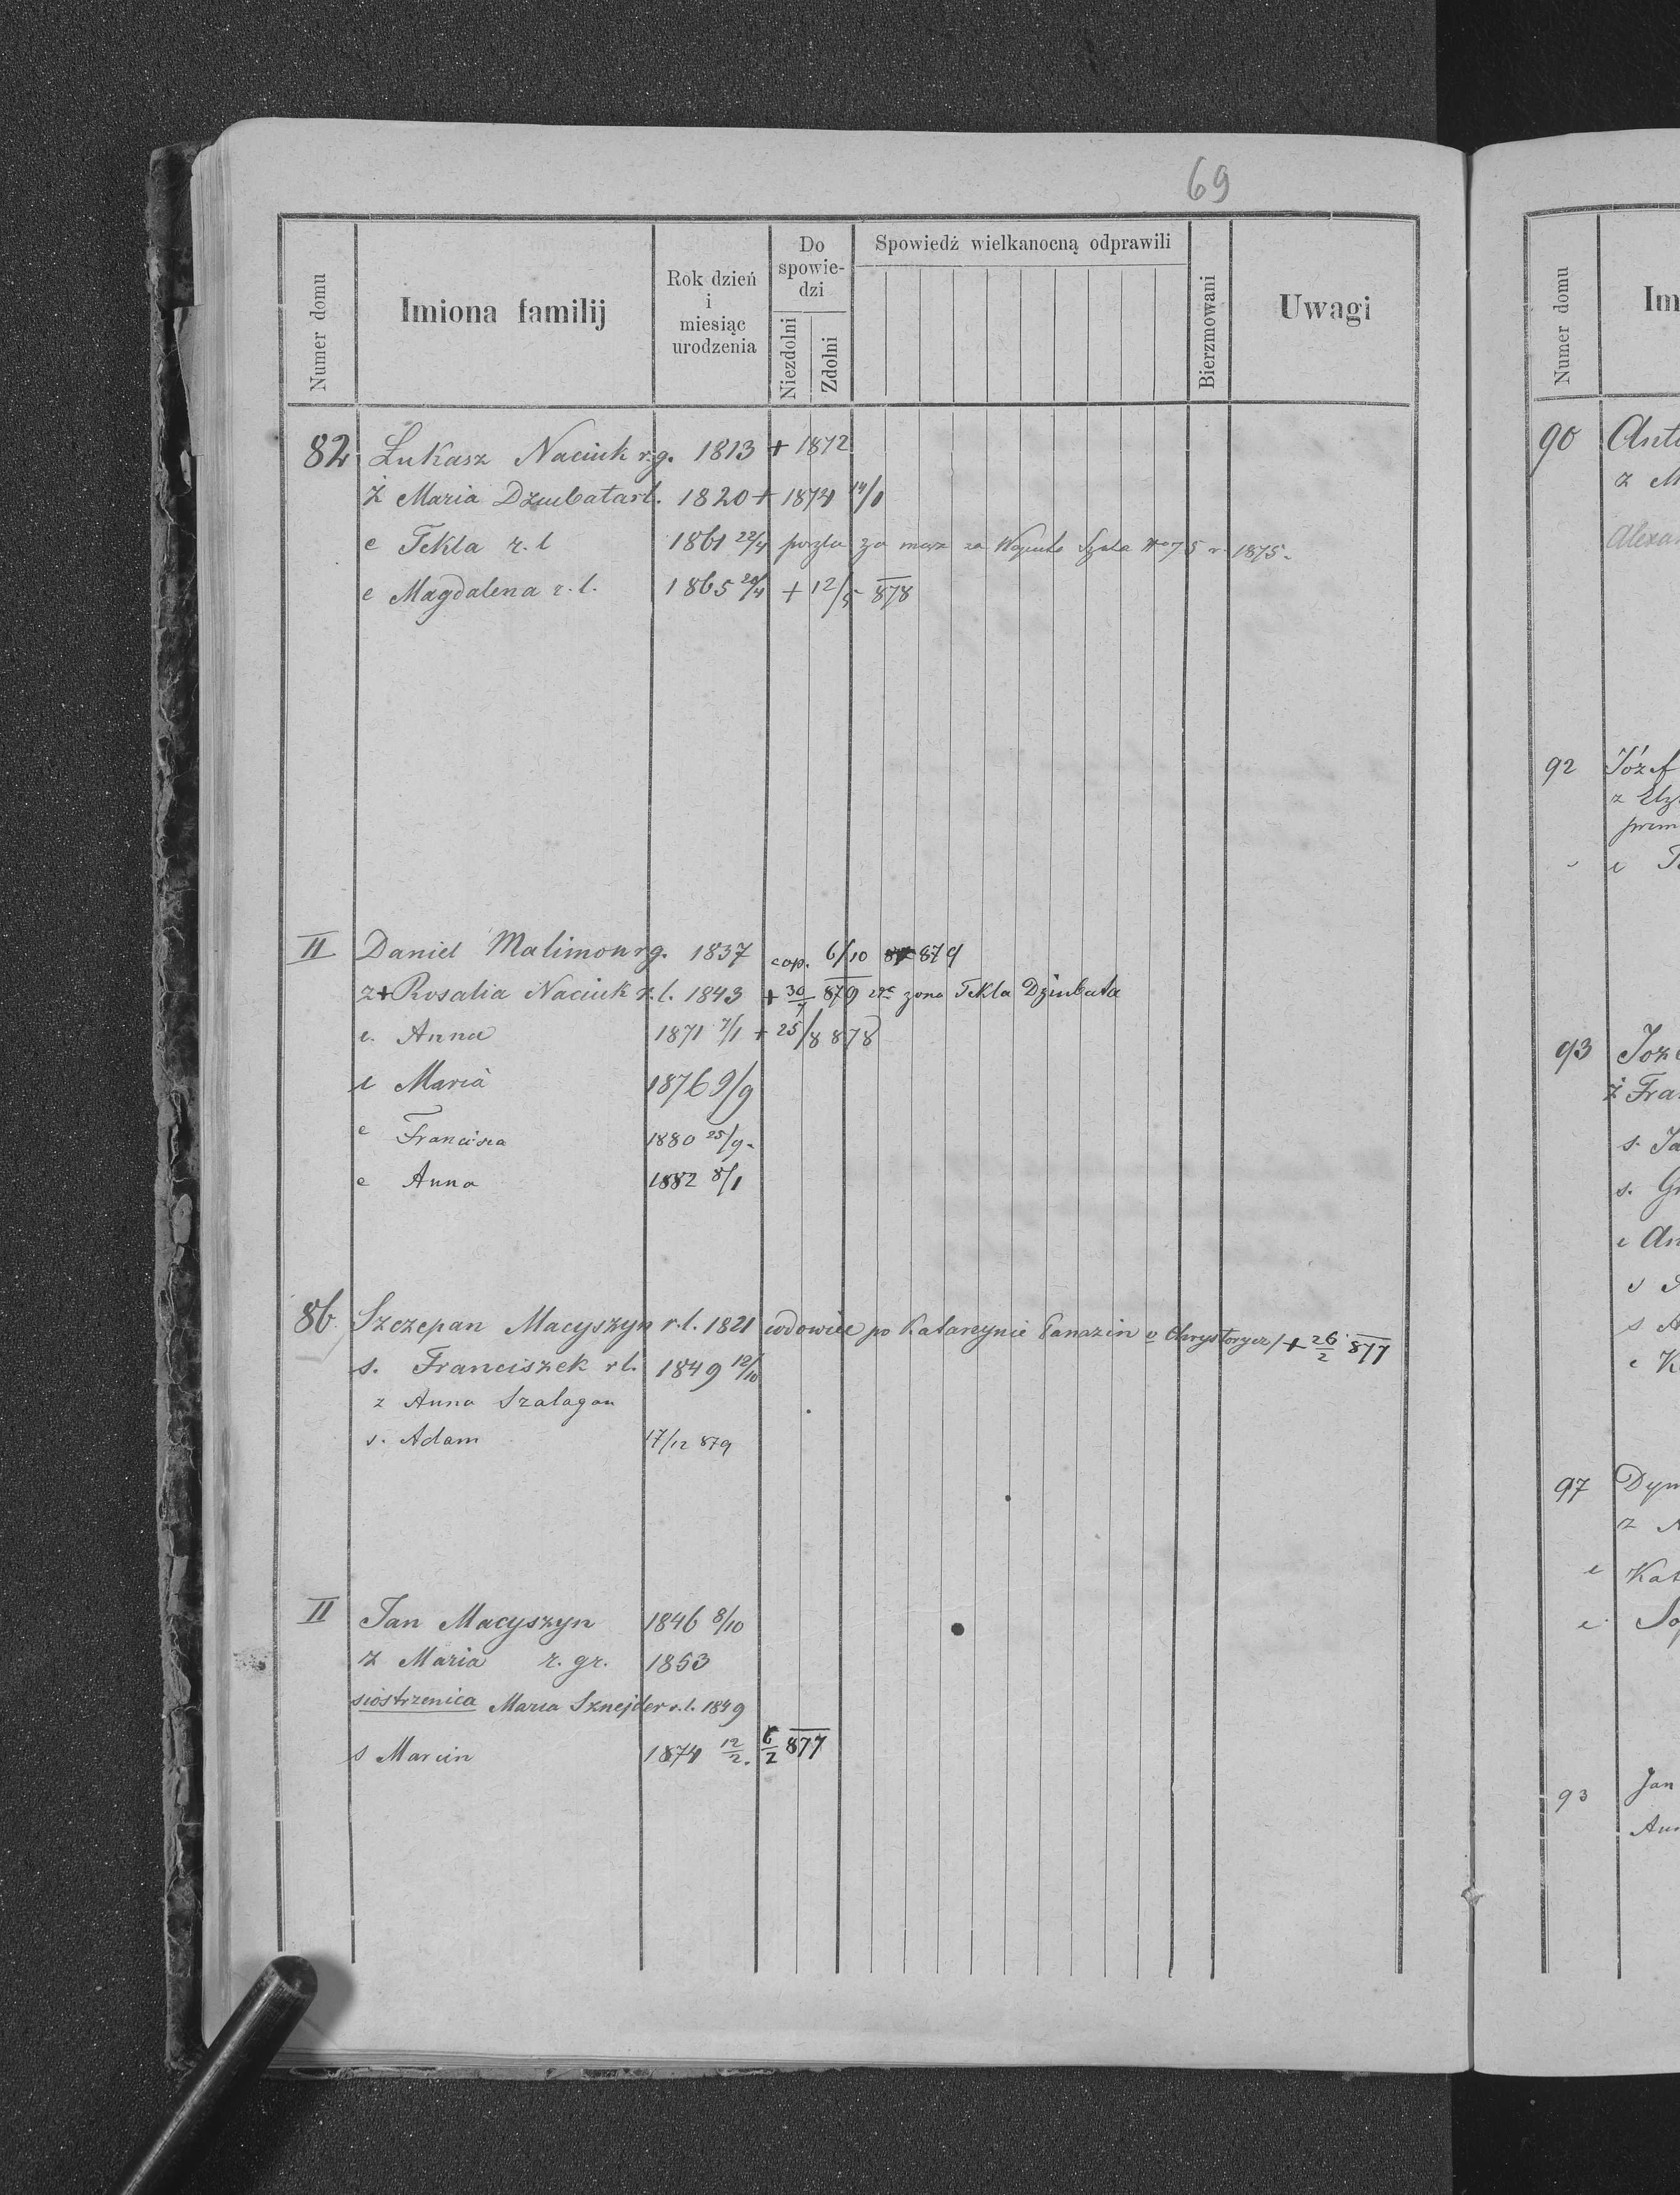 69
Numer domu
Imiona familij
Rok dzień
i
miesiąc
urodzenia
Do
spowie-
dzi
Niezdolni
Zdolni
Spowiedź wielkanocną odprawili
Bierzmowani
Uwagi
82 Łukasz Naciuk r.g. 1813 + 1872
ż Maria Dziubata r.l. 1820 + 1874 14/1
c Tekla r.l 1861 22/4 poszła za mąż za No 75 r. 1875.
c Magdalena r.l. 1865 20/4 + 12/5 878
II Daniel Malimon rg. 1837 cop. 6/10 879
z + Rosalia Naciuk r.l. 1843 + 30/7 879 2ga zona Tekla Dziubata
c. Anna 1871 7/1 + 25/8 878
c Maria 1876 9/9
c Francisca 1880 25/9.
c Anna 1882 8/1
86 Szczepan Macyszyn r.l. 1821 wdowiec po Katarzynie Panazin v Chrystorycz / + 26/2 877
s. Franciszek r l. 1849 12/10
z Anna Szalagan
s. Adam 17/12 879
II Jan Macyszyn 1846 8/10
z Maria r. gr. 1853
siostrzenica Maria Sznejder r.l. 1849
s Marcin 1874 12/2. 6/2 877
Numer domu
Im
90 Anto
z M
Alexan
92 Józef
z Elż
prim
c T
93 Joz
ż Fra
s. Ja
s. Gr
c An
s A
c K
97 Dym
z
c Kat
c So
93 Jan
Ann